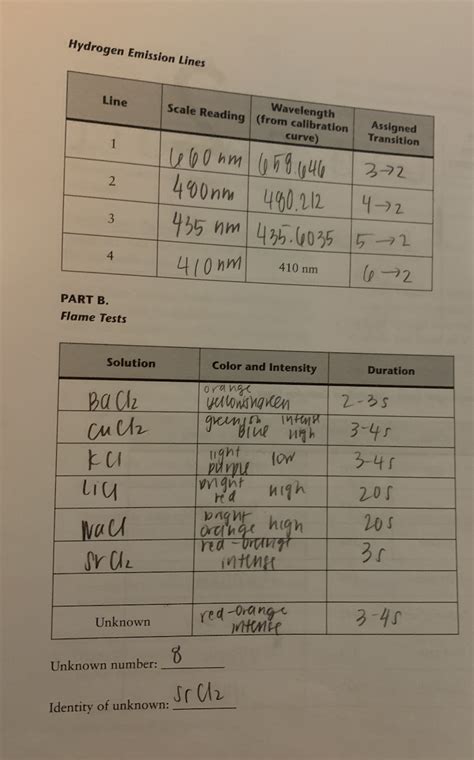 Hydrogen Emission Lines
Line Scale Reading Wavelength (from calibration curve) Assigned Transition
1 660 nm 658.646 3→2
2 480nm 480.212 4→2
3 435 nm 435.6035 5→2
4 410 nm 410 nm 6→2
PART B.
Flame Tests
Solution Color and Intensity Duration
BaCl2 orange yellowish green 2-3s
CuCl2 greenish blue intense high 3-4s
KCl light purple low 3-4s
LiCl bright red high 20s
NaCl bright orange high 20s
SrCl2 red-orange intense 3s
Unknown red-orange intense 3-4s
Unknown number: 8
Identity of unknown: SrCl2